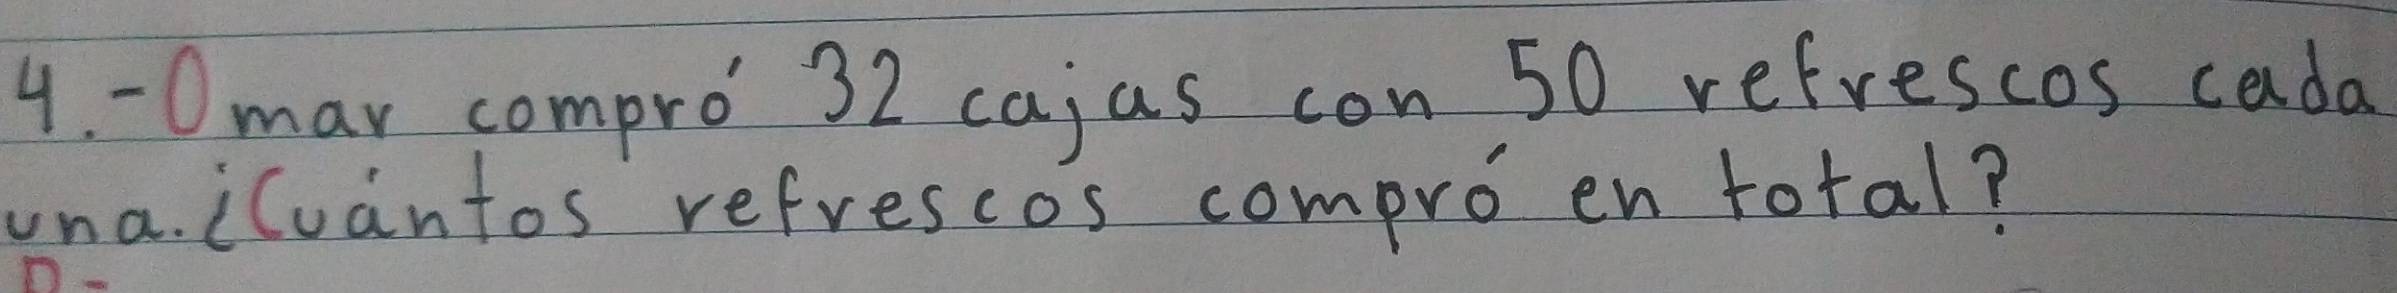 4.-Omar compró 32 cajas con 50 refrescos cada
una. ¿Cuántos refrescos compró en total?